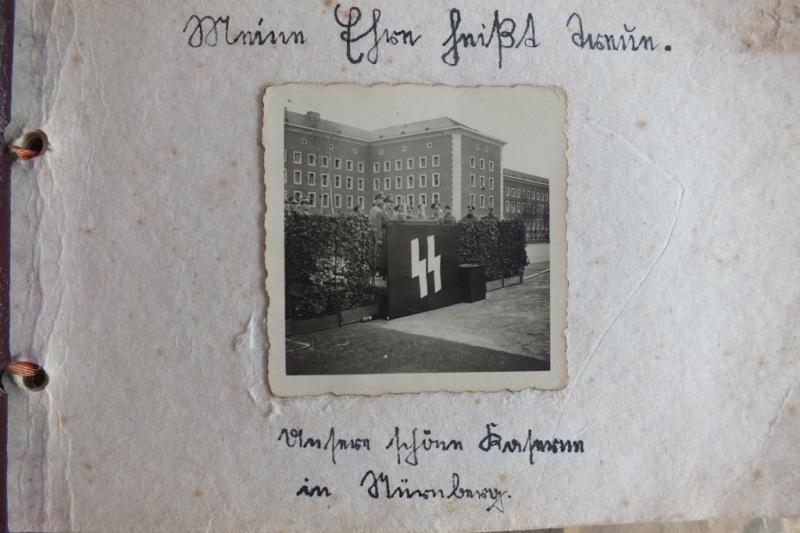 Meine Ehre heißt Treue.
Unsere schöne Kaserne
in Nürnberg.